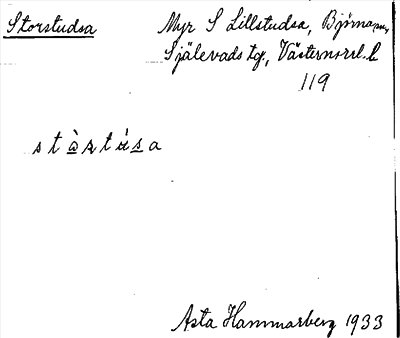 Storstudsa
Myr S Lillstudsa, Björna sn,
Själevads tg., Västernorrl. l.
119
stàrtúsa
Asta Hammarberg 1933